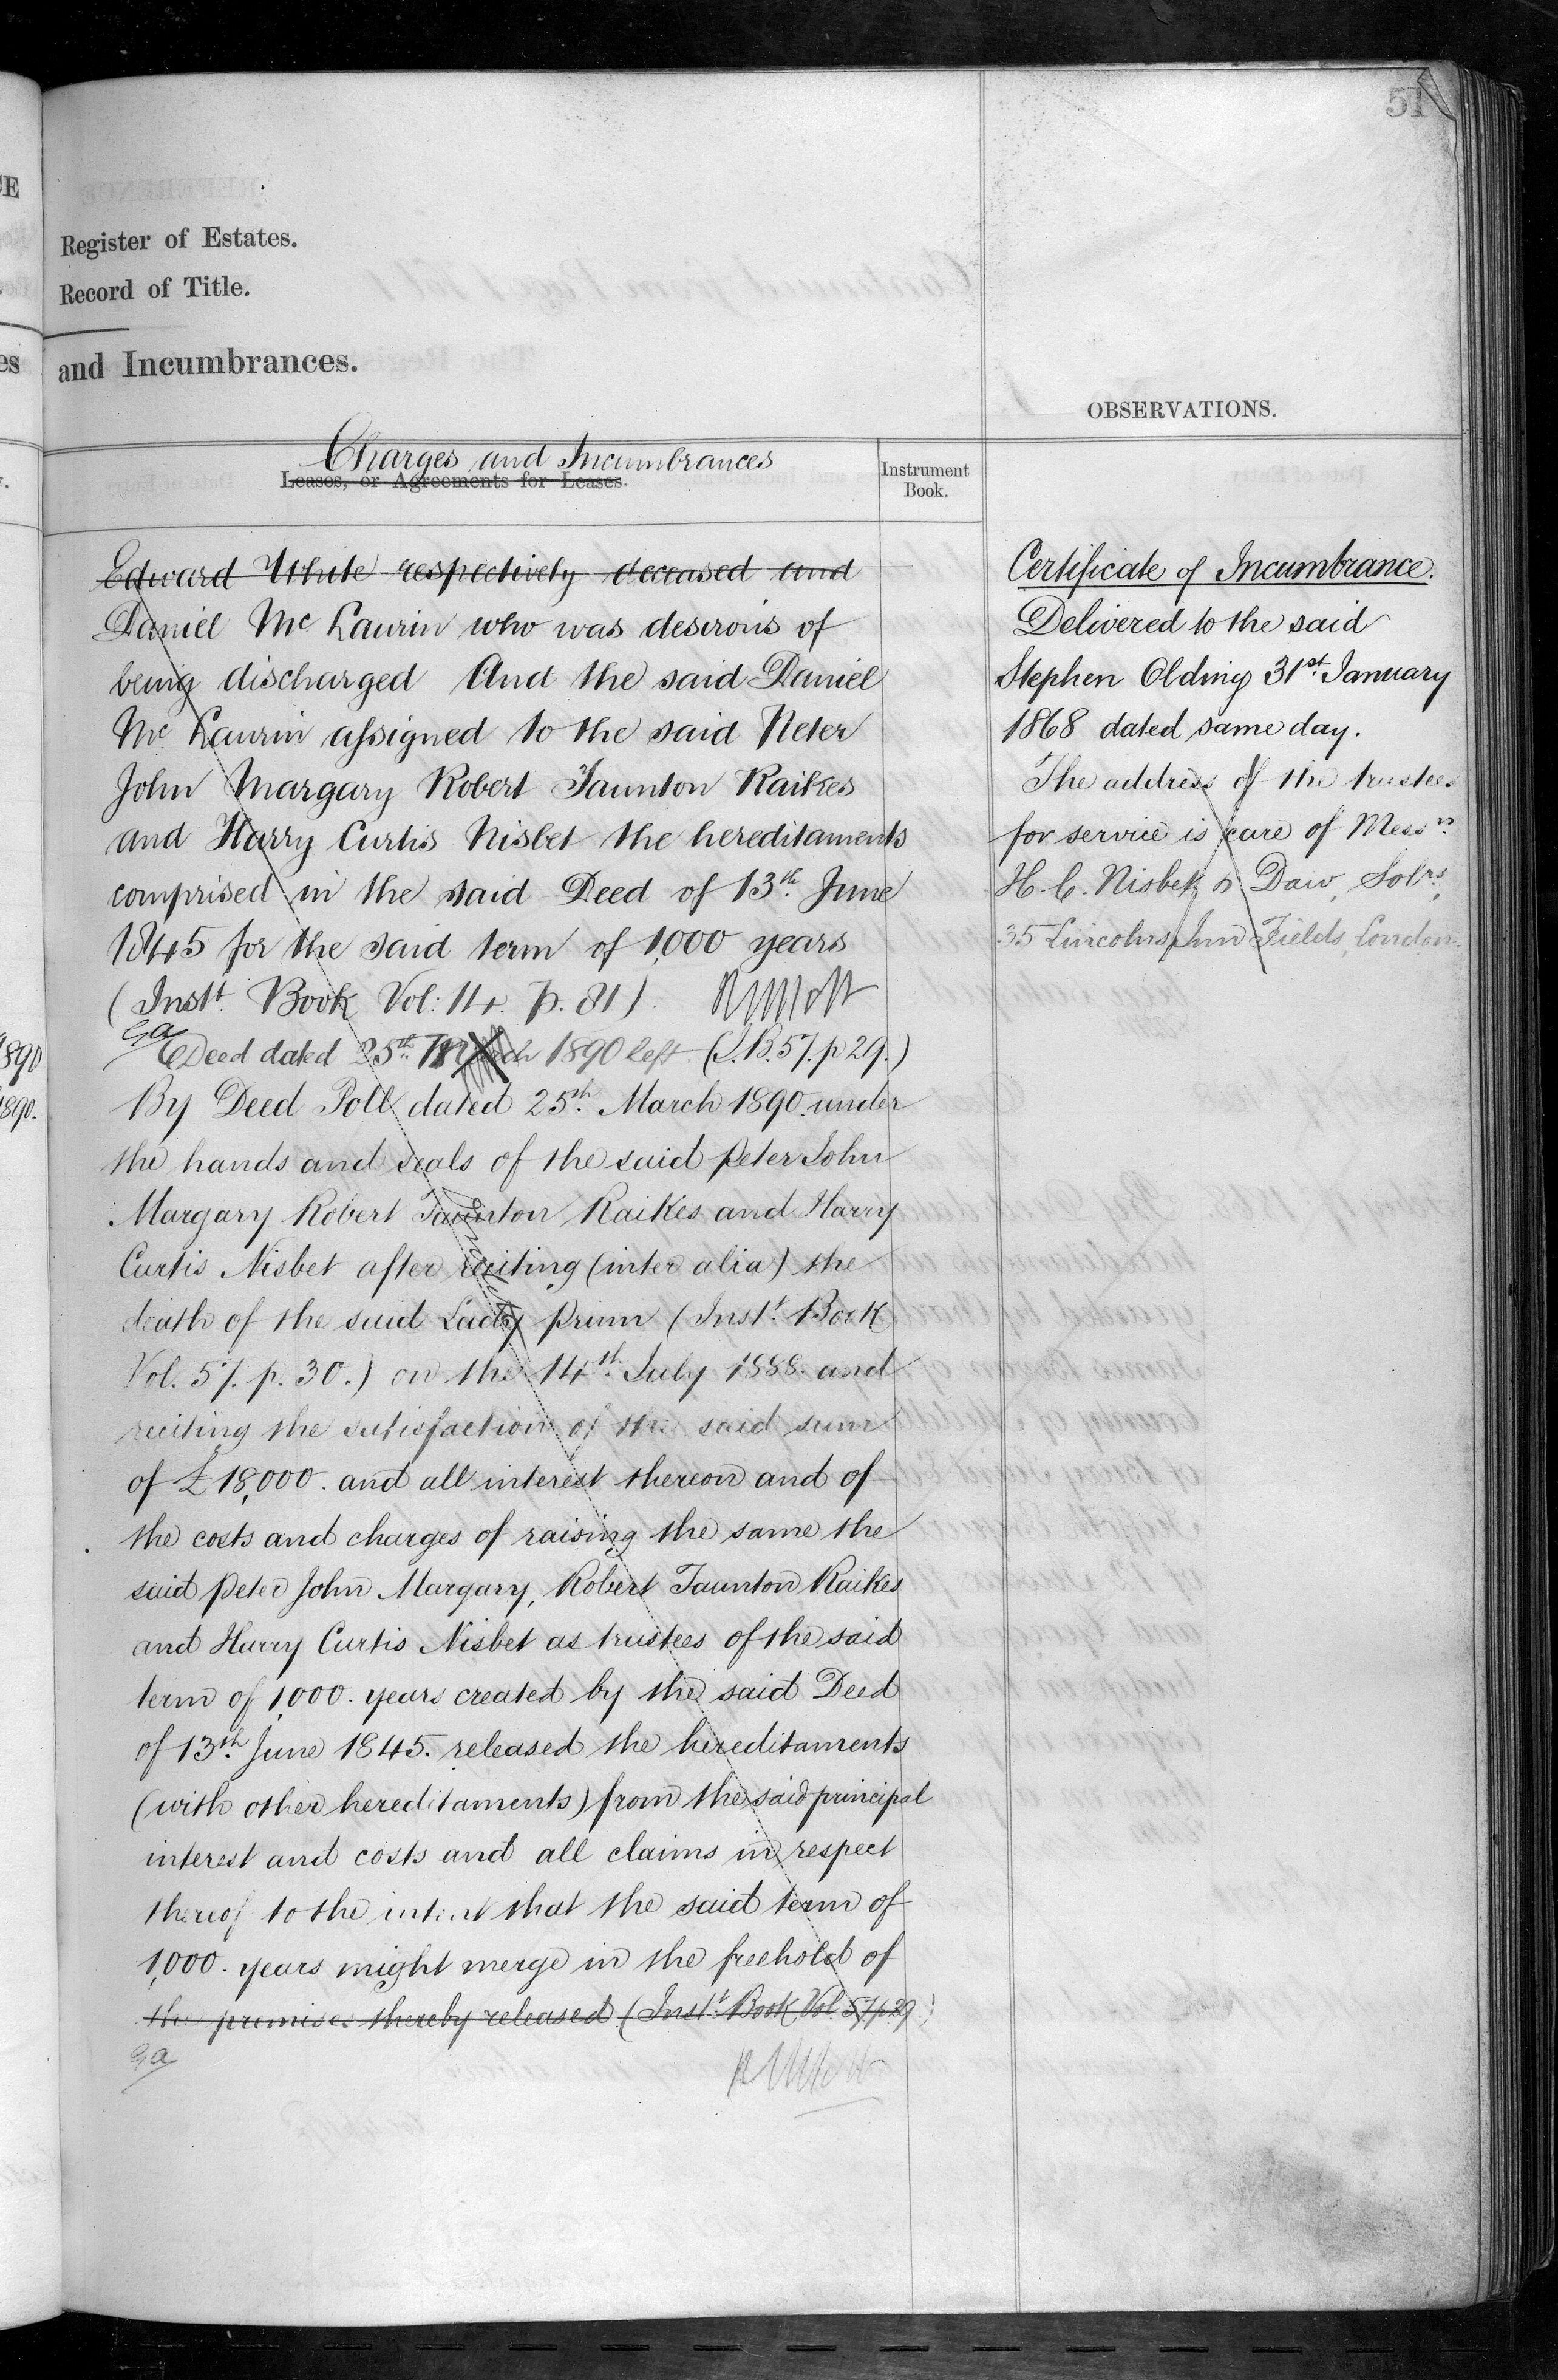 51
Register of Estates.
Record of Title.
and Incumbrances.
OBSERVATIONS.
Charges and Incumbrances
Leases, or Agreements for Leases.
Instrument
Book.
Edward White respectively deceased and
Daniel Mc Laurin who was desirous of
being discharged And the said Daniel
Mc Laurin assigned to the said Peter
John Margary Robert Taunton Raikes
and Harry Curtis Nisbet the hereditaments
comprised in the said Deed of 13th June
1845 for the said term of 1,000 years
(Instt. Book Vol: 14. p. 81)
Deed dated 25th March 1890 left (I.B. 57. p 29.)
By Deed Poll dated 25th March 1890 under
the hands and seals of the said Peter John
Margary Robert Taunton Raikes and Harry
Curtis Nisbet after reciting (inter alia) the
death of the said Lady Prinn (Instt. Book
Vol. 57. p. 30.) on the 14th July 1888. and
reciting the satisfaction of the said sum
of £18,000. and all interest thereon and of
the costs and charges of raising the same the
said Peter John Margary, Robert Taunton Raikes
and Harry Curtis Nisbet as trustees of the said
term of 1,000. years created by the said Deed
of 13th June 1845. released the hereditaments
(with other hereditaments) from the said principal
interest and costs and all claims in respect
thereof to the intent that the said term of
1,000. years might merge in the freehold of
the premises thereby released (Instt. Book Vol. 57 p 29.)
Certificate of Incumbrance.
Delivered to the said
Stephen Olding 31st January
1868 dated same day.
The address of the trustees
for service is care of Messrs.
H. C. Nisbet & Daw, Solrs,
35 Lincolns Inn Fields, London.
1890
1890.